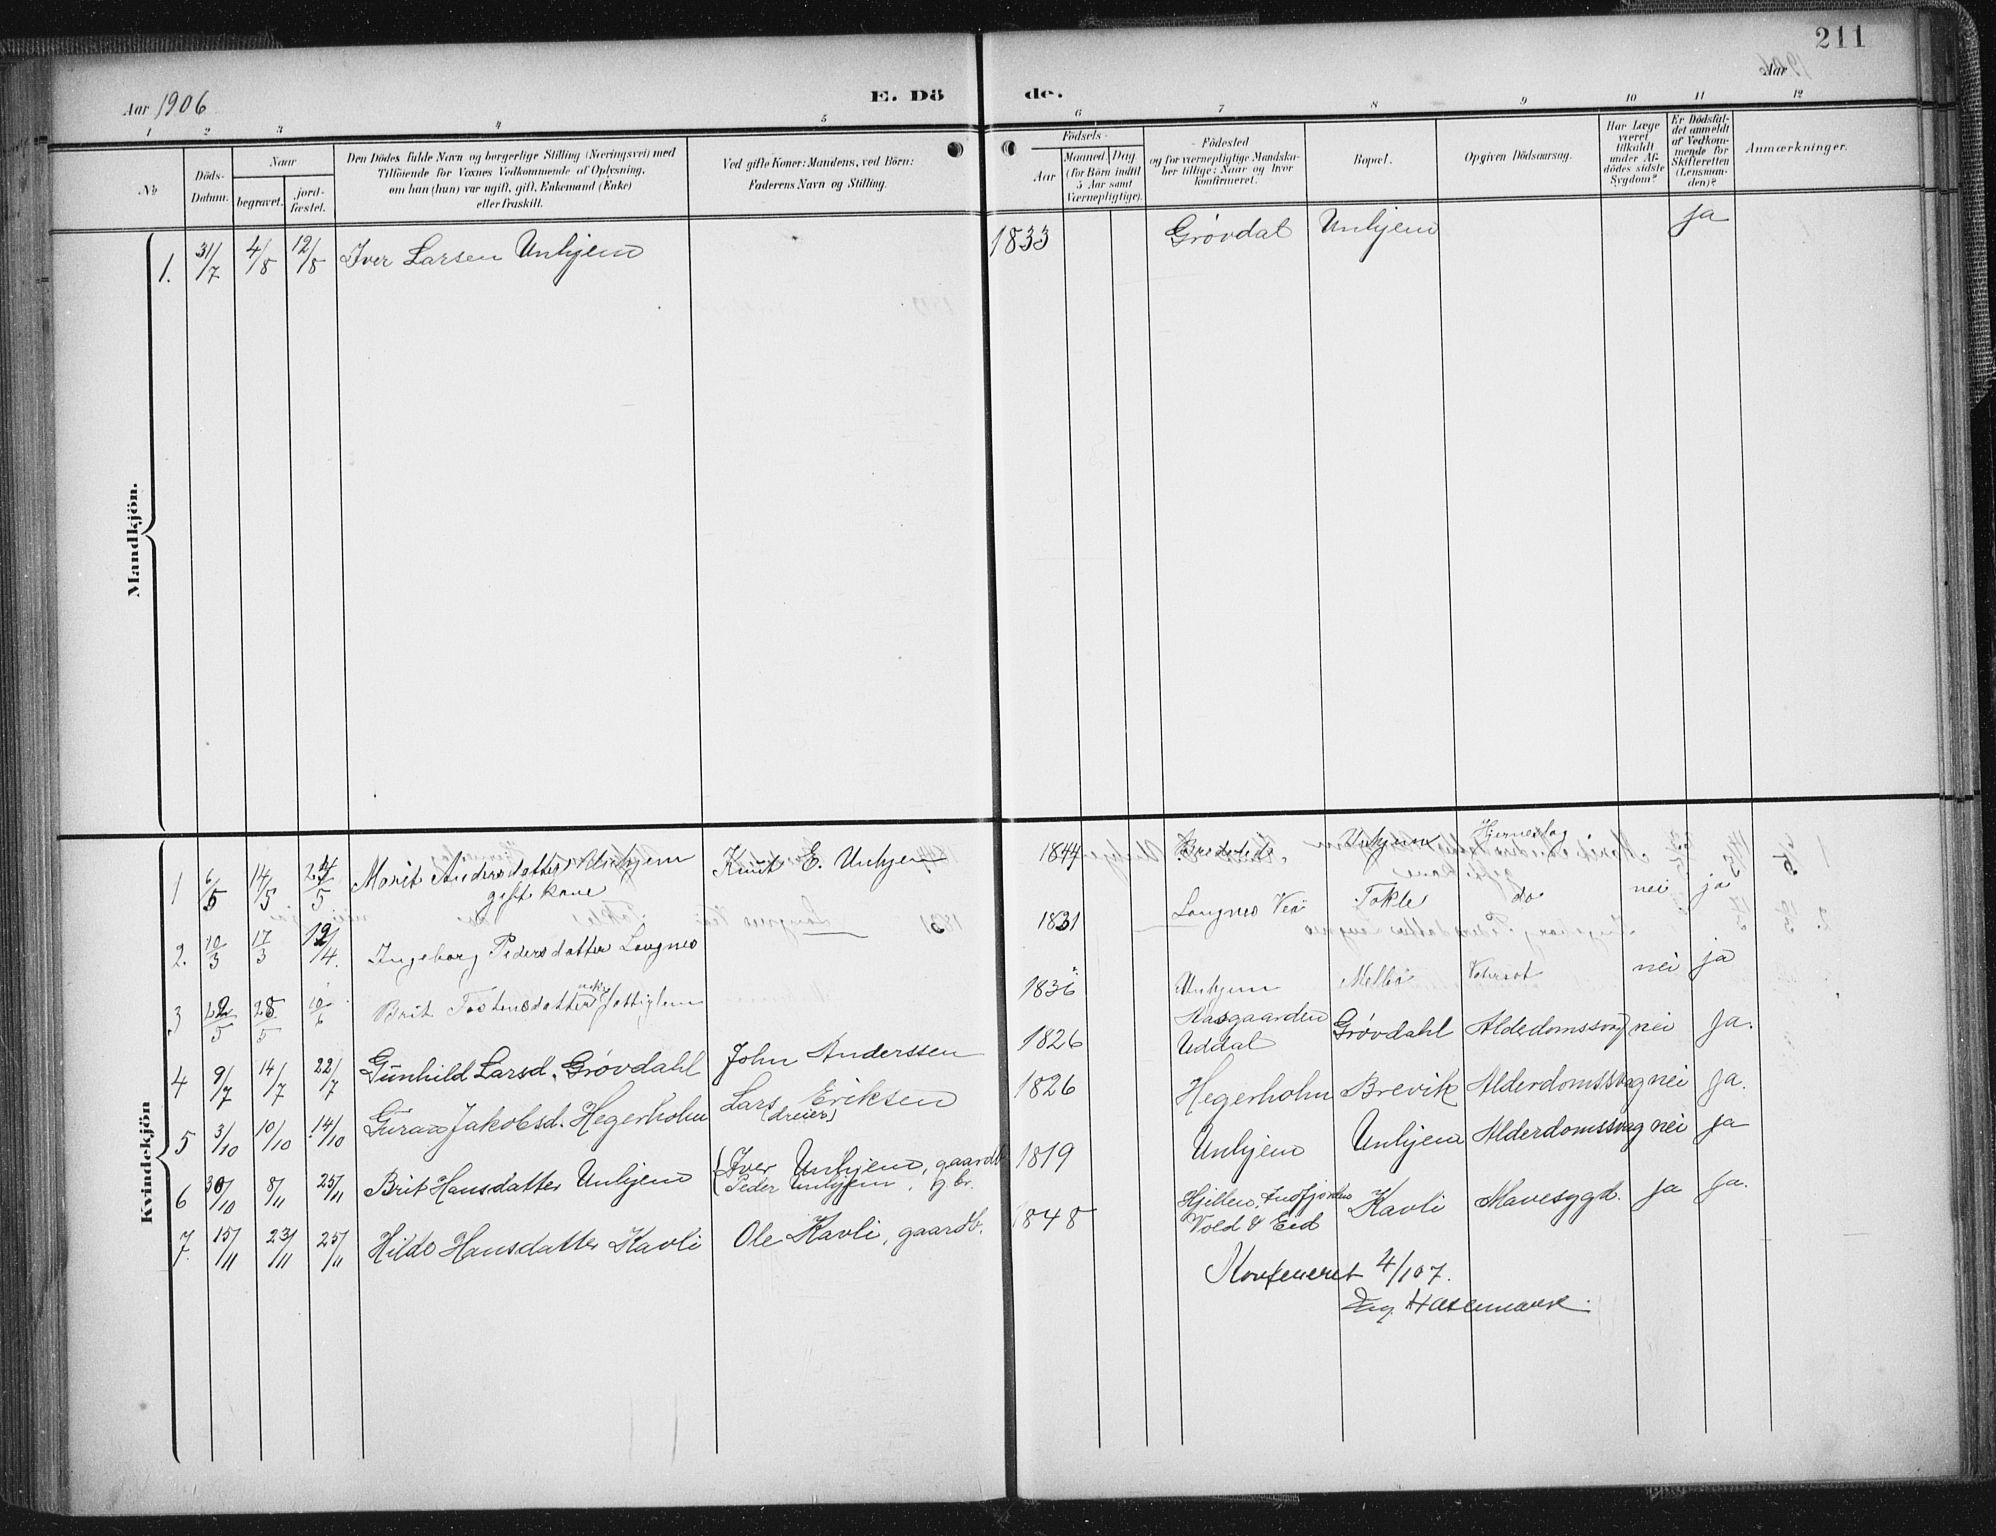 211
Aar 1906
E. Dö de.
Aar 1906
1 2 3 4 5 6 7 8 9 10 11 12
No
Döds-Datum.
Naar
begravet.
jord-fæstet.
Den Dödes fulde Navn og borgerlige Stilling (Næringsvei) med
Tilföiende for Voxnes Vedkommende af Oplysning,
om han (hun) var ugift, gift, Enkemand (Enke)
eller fraskilt.
Ved gifte Koner: Mandens, ved Börn:
Faderens Navn og Stilling.
Födsels-
Aar
Maaned Dag
(for Börn indtil
5 Aar samt
Værnepligtige).
Födested
og for værnepligtige Mandska-
ber tillige: Naar og hvor
konfirmeret.
Bopæl.
Opgiven Dödsaarsag.
Har Læge
været
tilkaldt
under Af-
dödes sidste
Sygdom?
Er Dödsfal-
det anmeldt
af Vedkom-
mende for
Skifteretten
(Lensman-
den)?
Anmærkninger.
Mandkjön.
1. 31/7 4/8 12/8 Iver Larsen Unhjem 1833 Grövdal Unhjem ja
Kvindekjön
1 6/5 14/5 24/5 Marit Andersdatter Unhjem Knut E. Unhjem 1844 Unhjem Hjerneslag
gift kone
nei ja
2. 10/3 17/3 12/4. Ingeborg Pedersdatter Langnes 1831 Langnes Veö Tokle do
nei ja
3 22/5 28/5 10/6 Brit Tostensdatter 1836 Unhjem Melbö Vatersot
4 9/7 14/7 22/7 Gunhild Larsd. Grövdahl John Anderssen 1826 Uddal Grövdahl Alderdomssvag nei ja.
5 3/10 10/10 14/10 Guran Jakobsd. Hegerholm Lars Eriksen 1826 Hegerholm Brevik Alderdomssvag nei ja.
(dreier)
6 30/10 8/11 25/11 Brit Hansdatter Unhjem Iver Unhjem, gaardb. 1819 Unhjem Unhjem Alderdomssvag nei ja
Peder Unhjem, g.br.
7. 15/11 23/11 25/11 Hilde Hansdatter Kavli Ole Kavli, gaardb. 1848 Hjellen, Indfjorden Kavli Mavesygd. ja ja.
Vold & Eid
Konfereret 4/1 07.